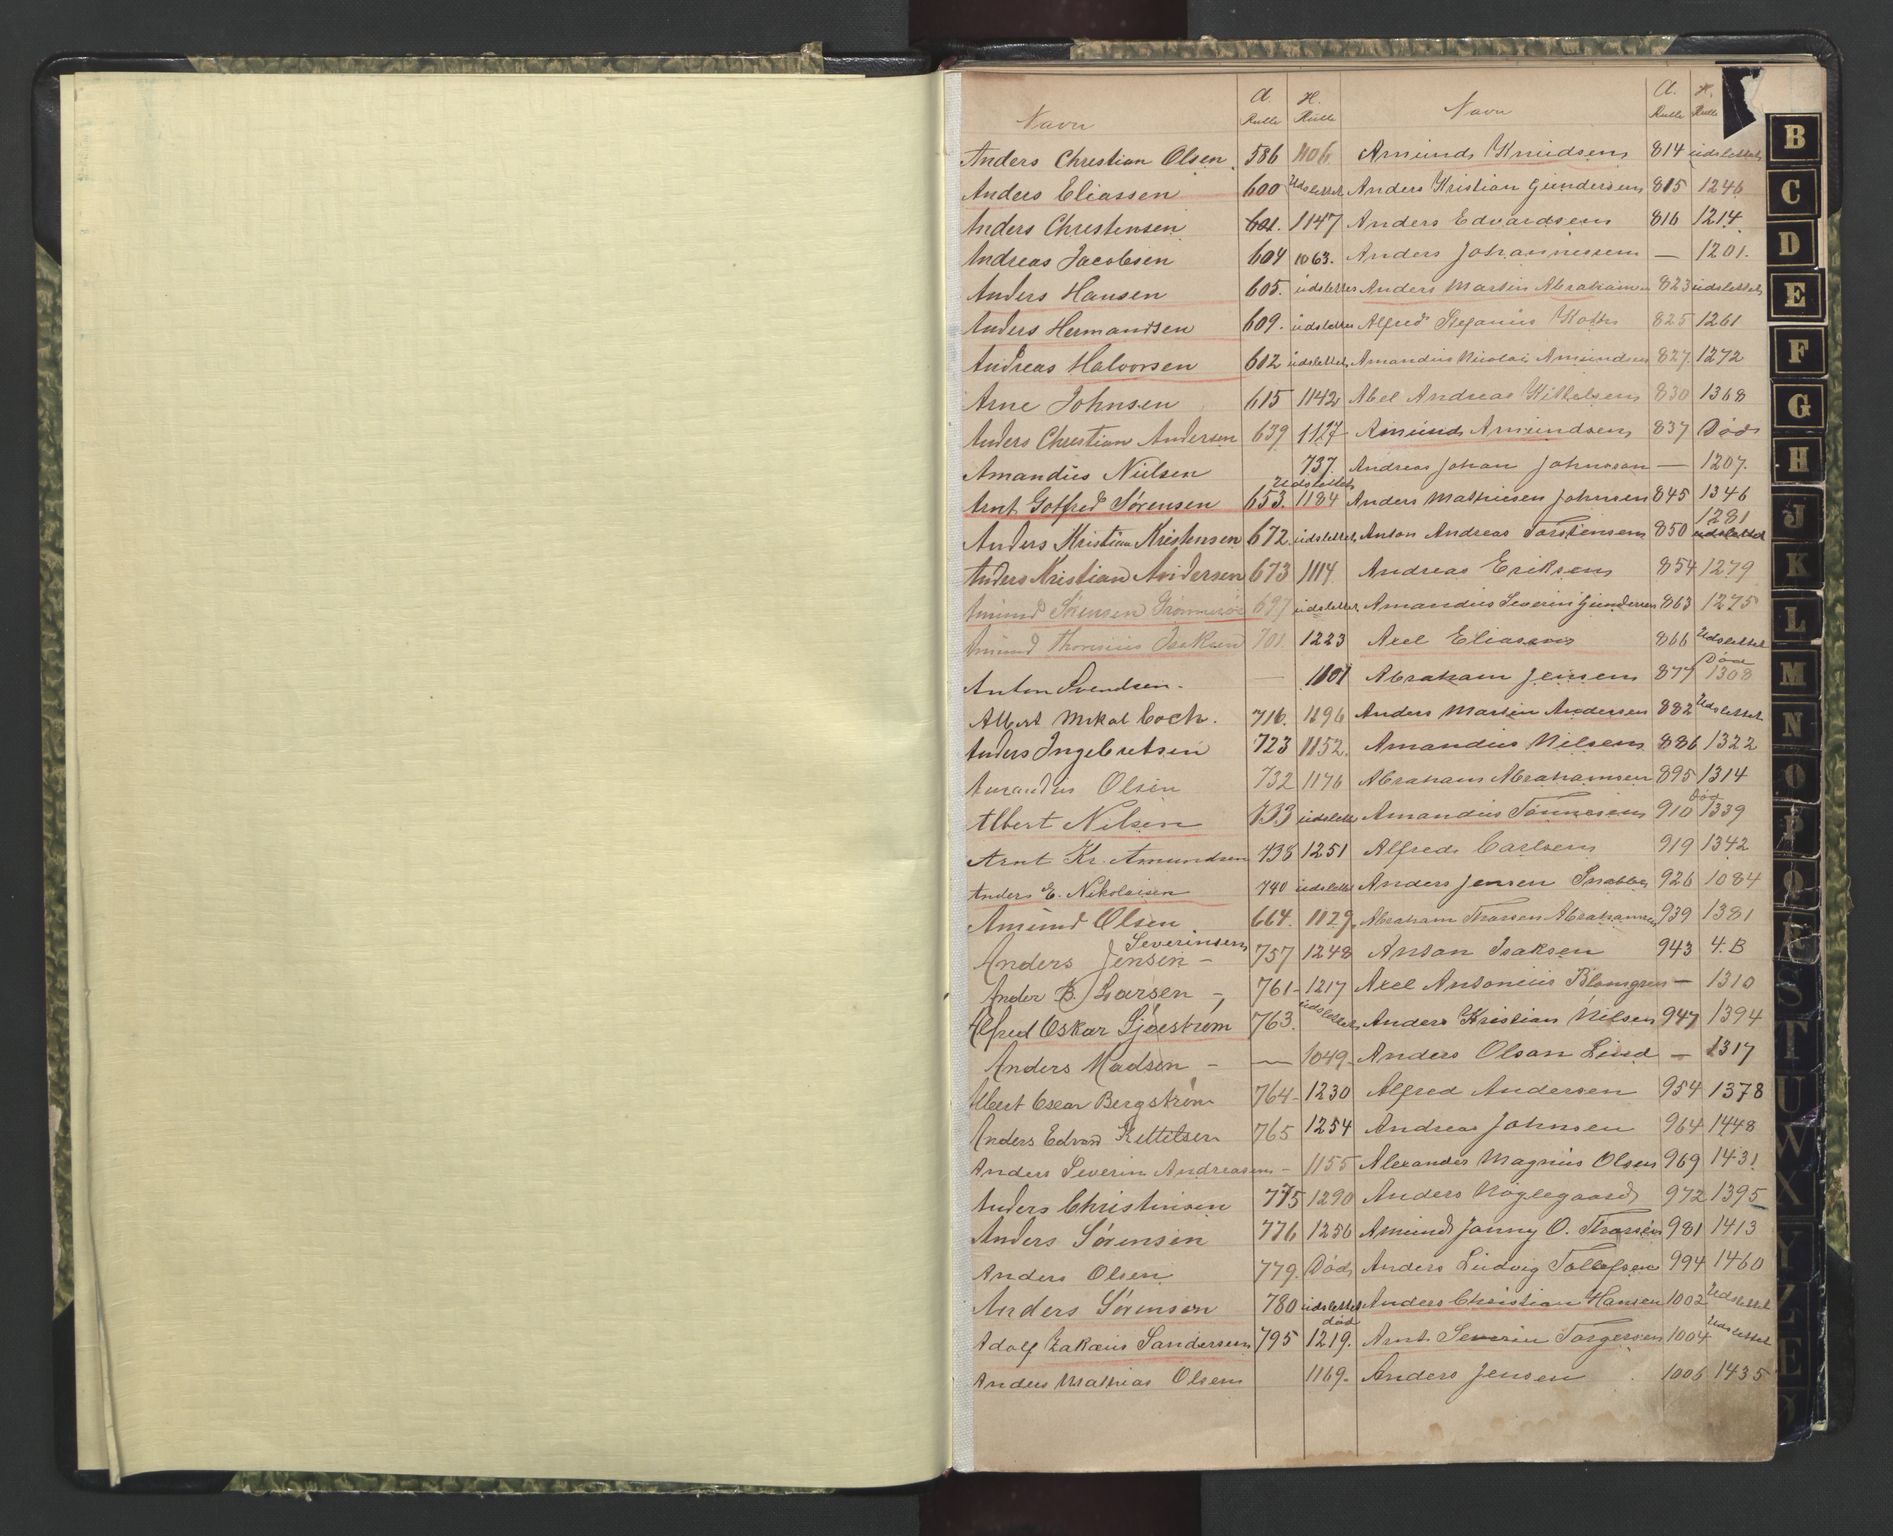 Navn A. Rulle H. Rulle
Anders Christian Olsen 586 1106
Anders Eliassen 600 Udslettet
Anders Christensen 601. 1147
Andreas Jacobsen 604 1063.
Anders Hansen 605. udslettet
Anders Hermandsen 609. udslettet
Andreas Halvorsen 612 udslettet
Arne Johnsen 615 1142
Anders Christian Andersen 639 1127
Amandus Nielsen 737.
Udslettet
Arnt Gotfred Sørensen 653. 1184
Anders Kristian Kristensen 672. udslettet
Anders Kristian Andersen 673 1114.
Amund Sørensen 697 udslettet
Amund Thorenius Isaksen 701 1223
Anton Svendsen. — 1101
Albert Mikal Coch. 716. 1296
Anders Ingebretsen 723 1152.
Amandus Olsen 732 1176
Albert Nilsen 733 udslettet
Arnt Kr. Amundsen 738 1251
Anders E. Nikolaisen 740 udslettet
Amund Olsen 664. 1129.
Severinsen
Anders Jensen – 757 1248
Ander B. Larsen – 761- 1217
Alfred Oskar Sjøestrøm 763. udslettet
Anders Madsen – — 1049-
Albert Oscar Bergstrøm 764- 1230
Anders Edvard Kittilsen 765 1254
Anders Severin Andreasen - 1155
Anders Christensen 775 1290
Anders Sørensen 776 1256
Anders Olsen 779. Død
Anders Sørensen 780 udslettet
død
Adolf Zakæus Sandersen 795 1219.
Anders Mathias Olsen 1169.
Navn A. Rulle H. Rulle
Amund Knudsen 814 udslettet
Anders Kristian Gundersen 815 1246
Anders Edvardsen 816 1214.
Anders Johannessen — 1201.
Anders Martin Abrahamsen 823 udslettet
Alfred Stefanius 825 1261
Amandus Nicolai Amundsen 827. 1272
Abel Andreas Kittelsen 830 1368
Amund Amundsen 837 Død
Andreas Johan Johnsson — 1207.
Anders Mathiesen Johnsen 845 1346
1281
Anton Andreas Torstensen 850 udslettet
Andreas Eriksen 854 1279
Amandus Severin Gundersen 863 1275
Axel Eliassen 866 Udslettet
Død
Abraham Jensen 877 1308
Anders Martin Andersen 882 Udslettet
Amandus Nilsen 886 1322
Abraham Abrahamsen 895 1314
Død
Amandus Tønnesen 910 1339
Alfred Carlsen 919 1342
Anders Jensen 926 1084
Abraham Thorsen Abrahamsen 939 1381
Anton Isaksen 943 4.B
Axel Antonius Blomgren — 1310
Anders Kristian Nilsen 947 1394
Anders Olsen Lind — 1317
Alfred Andersen 954 1378
Andreas Johnsen 964 1448
Alexander Magnus Olsen 969 1431
Anders Nøglegaard 972 1395
Amund Jonny O. Thorsen 981 1413
Anders Ludvig Tollefsen 994 1460
Anders Christian Hansen 1002 Udslettet
Arnt Severin Torgersen 1004 Udslettet
Anders Jensen 1006 1435
B
C
D
E
F
G
H
J
K
L
M
N
O
P
Q
R
S
T
U
W
X
Y
Z
E
Ø